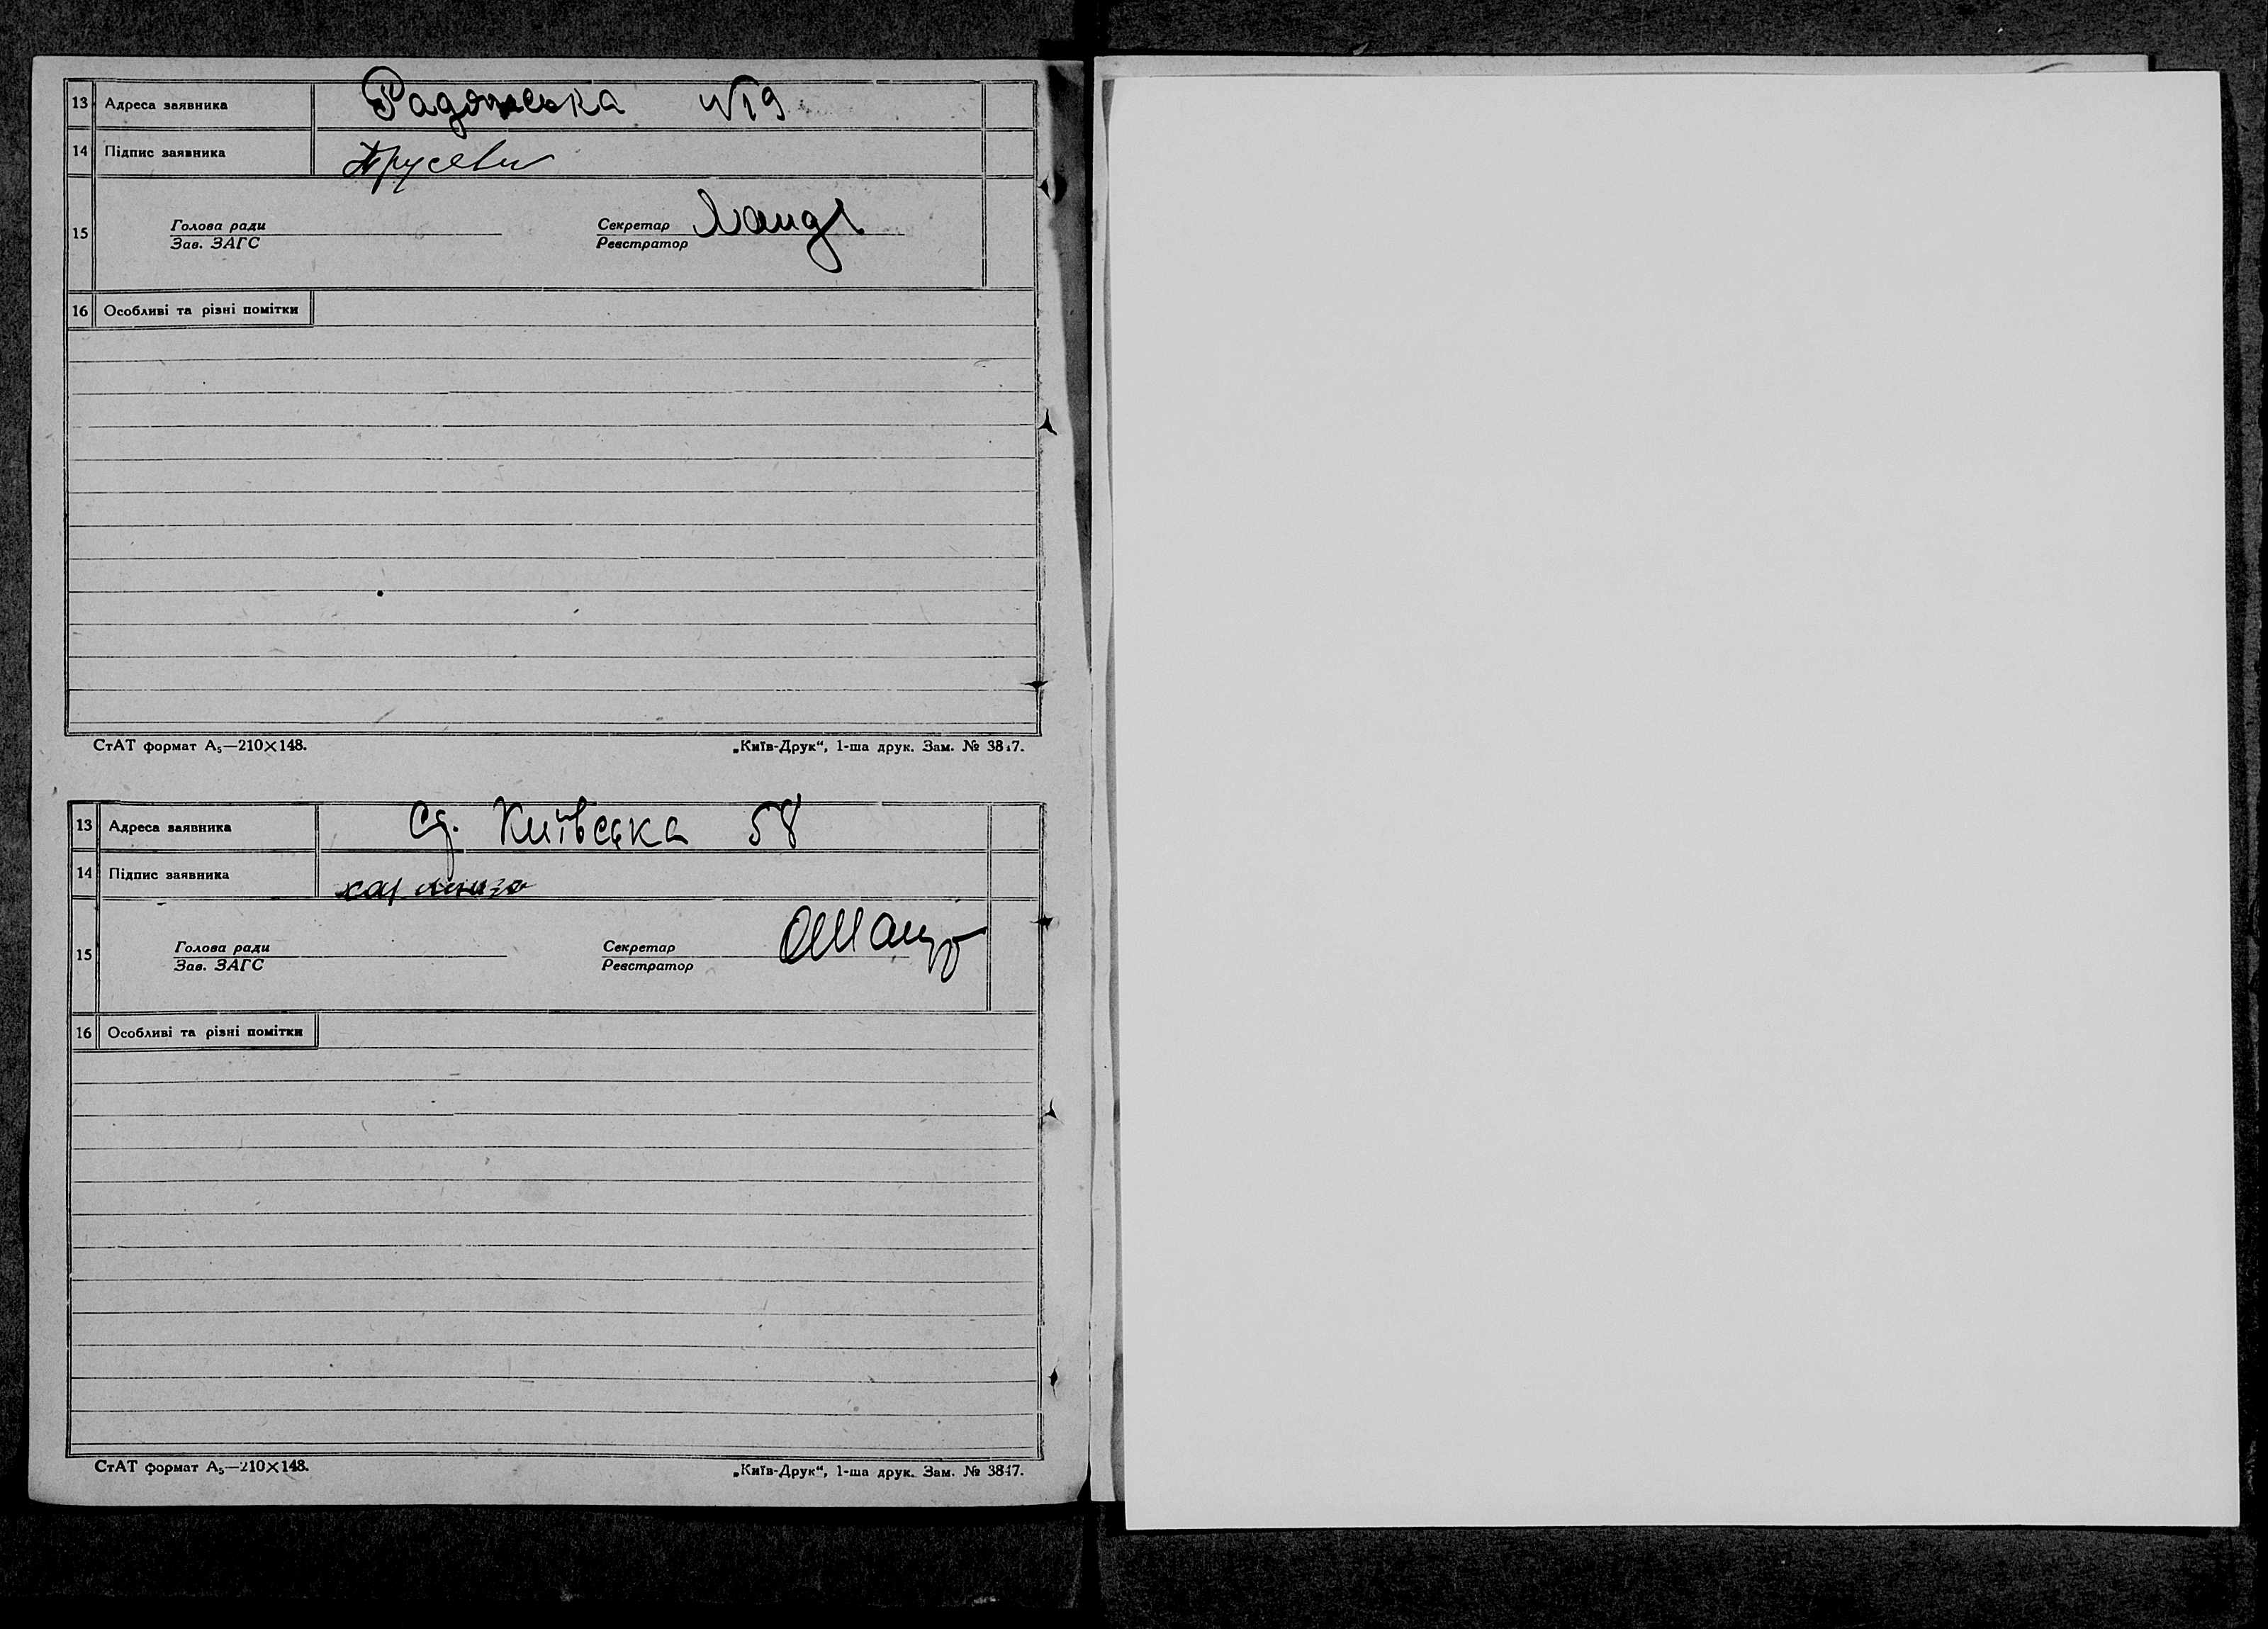 13 Адреса заявника Радомська №19
14 Підпис заявника
15 Голова ради Секретар
Зав. ЗАГС Реєстратор
16 Особливі та різні помітки
СтАТ формат А₅—210×148. „Київ-Друк“, 1-ша друк. Зам. № 3847.
13 Адреса заявника Ст. Київська 58
14 Підпис заявника
15 Голова ради Секретар
Зав. ЗАГС Реєстратор
16 Особливі та різні помітки
СтАТ формат А₅—210×148. „Київ-Друк“, 1-ша друк. Зам. № 3847.